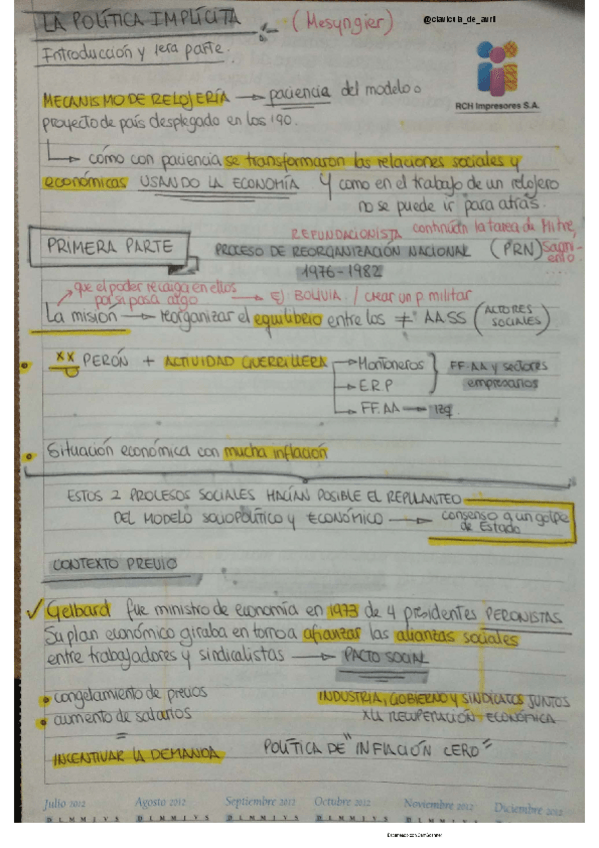 LA POLÍTICA IMPLÍCITA (Mesyngier) @clavicula_de_avril
Introducción y 1era parte.
RCH Impresores S.A.
MECANISMO DE RELOJERÍA → paciencia del modelo o
proyecto de país desplegado en los '90.
↳ cómo con paciencia se transformaron las relaciones sociales y
económicas USANDO LA ECONOMÍA Y como en el trabajo de un relojero
no se puede ir para atrás.
REFUNDACIONISTA continúan la tarea de Mitre,
PRIMERA PARTE PROCESO DE REORGANIZACIÓN NACIONAL (PRN) Sagri-
ento.
1976-1982
que el poder recaiga en ellos
por si pasa algo → Ej. BOLIVIA / crear un p. militar
La misión → reorganizar el equilibrio entre los ≠ AASS (ACTORES
SOCIALES)
XX PERÓN + ACTIVIDAD GUERRILLERA → Montoneros
→ ERP
→ FF.AA → izq.
FF.AA y sectores
empresarios
Situación económica con mucha inflación
ESTOS 2 PROCESOS SOCIALES HACÍAN POSIBLE EL REPLANTEO
DEL MODELO SOCIOPOLÍTICO Y ECONÓMICO → consenso a un golpe
de Estado
CONTEXTO PREVIO
✓ Gelbard fue ministro de economía en 1973 de 4 presidentes PERONISTAS
Su plan económico giraba en torno a afianzar las alianzas sociales
entre trabajadores y sindicalistas → PACTO SOCIAL
• congelamiento de precios
• aumento de salarios
=
INCENTIVAR LA DEMANDA
INDUSTRIA, GOBIERNO Y SINDICATOS JUNTOS
X LA RECUPERACIÓN ECONÓMICA
POLÍTICA DE "INFLACIÓN CERO"
Julio 2012 Agosto 2012 Septiembre 2012 Octubre 2012 Noviembre 2012 Diciembre 2012